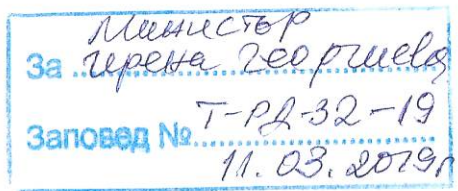 Министър
За Ирена Георгиева
Заповед № Т-РД-32-19
11.03.2019г